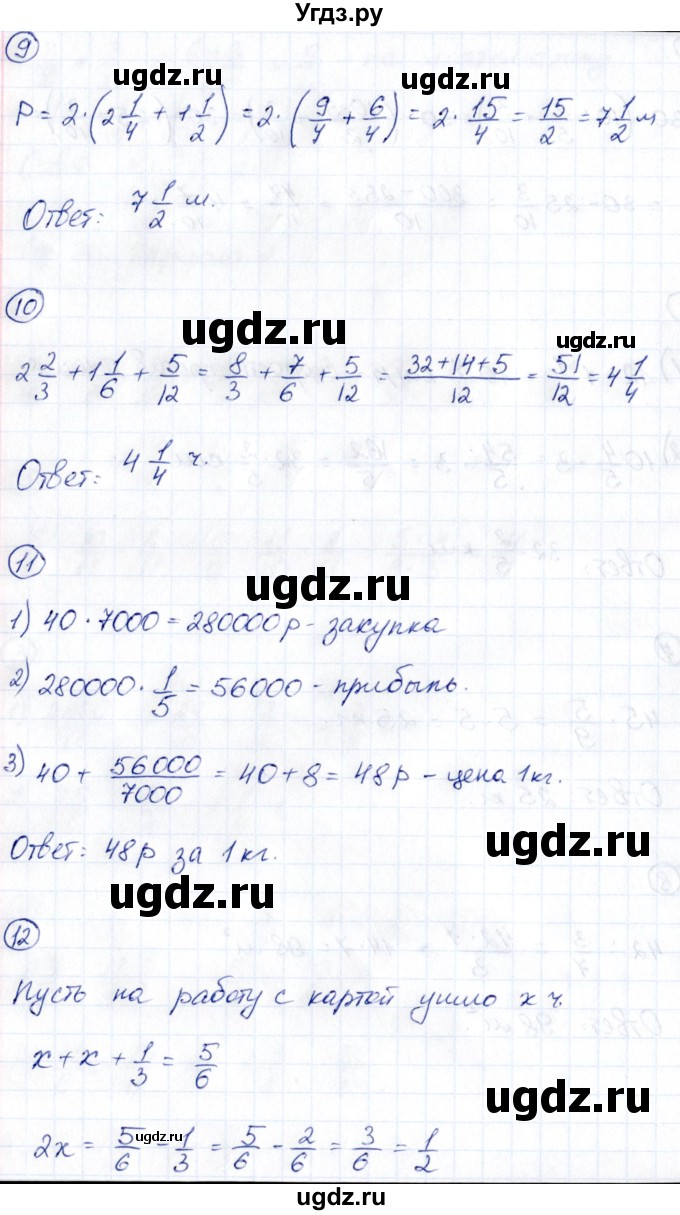 Угдз.ру
9
ugdz.ru
ugdz.ru
P = 2·(2 1/4 + 1 1/2) = 2·(9/4 + 6/4) = 2·15/4 = 15/2 = 7 1/2 м
Ответ: 7 1/2 м.
10
ugdz.ru
ugdz.ru
2 2/3 + 1 1/6 + 5/12 = 8/3 + 7/6 + 5/12 = (32+14+5)/12 = 51/12 = 4 1/4
Ответ: 4 1/4 ч.
ugdz.ru
11
ugdz.ru
1) 40·7000 = 280000 р - закупка
2) 280000·1/5 = 56000 - прибыль.
3) 40 + 56000/7000 = 40+8 = 48 р - цена 1 кг.
Ответ: 48 р за 1 кг.
ugdz.ru
ugdz.ru
12
Пусть на работу с картой ушло x ч.
x + x + 1/3 = 5/6
ugdz.ru
2x = 5/6 - 1/3 = 5/6 - 2/6 = 3/6 = 1/2
ugdz.ru
ugdz.ru